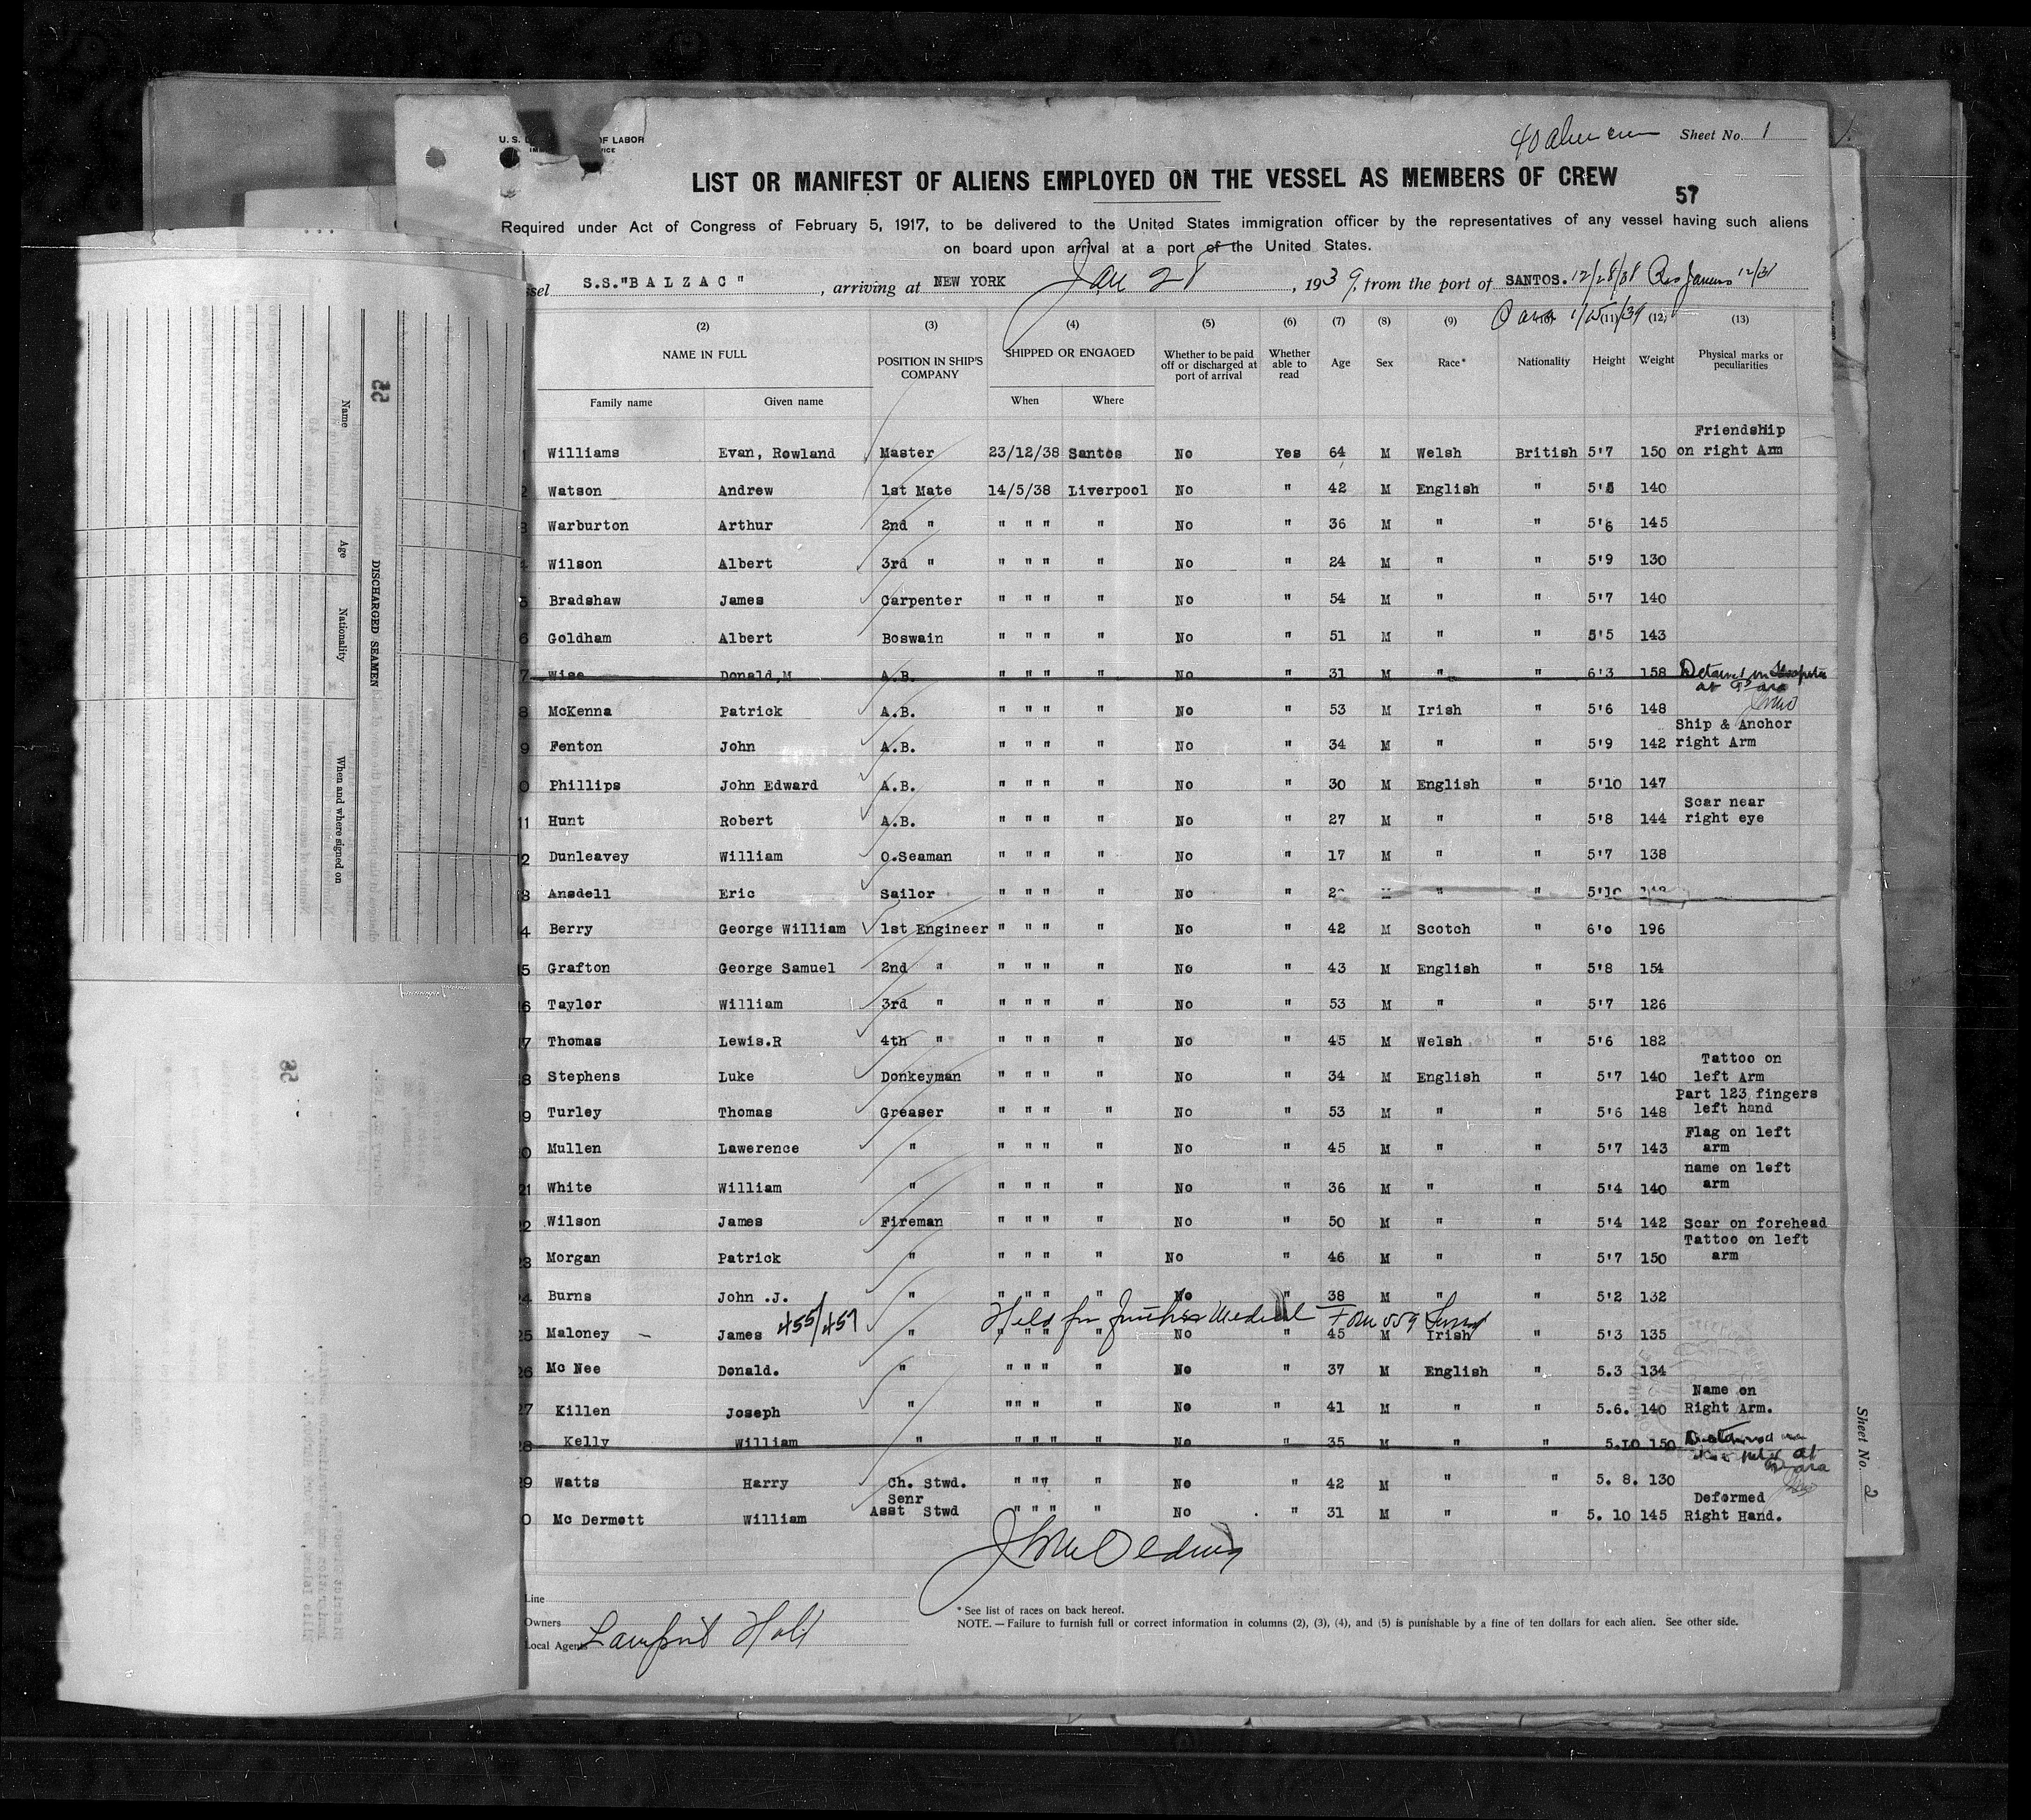 40 alien crew Sheet No. 1
U. S. OF LABOR
LIST OR MANIFEST OF ALIENS EMPLOYED ON THE VESSEL AS MEMBERS OF CREW
57
Required under Act of Congress of February 5, 1917, to be delivered to the United States immigration officer by the representatives of any vessel having such aliens
on board upon arrival at a port of the United States.
S.S."BALZAC" , arriving at NEW YORK Jan 28 , 1939, from the port of SANTOS. 12/28/38 Rio Janeiro 12/31
Para 1/15/39
(2) (3) (4) (5) (6) (7) (8) (9) (11) (12) (13)
NAME IN FULL POSITION IN SHIP'S COMPANY SHIPPED OR ENGAGED Whether to be paid off or discharged at port of arrival Whether able to read Age Sex Race* Nationality Height Weight Physical marks or peculiarities
Family name Given name When Where
Williams Evan, Rowland Master 23/12/38 Santos No Yes 64 M Welsh British 5'7 150 Friendship on right Arm
Watson Andrew 1st Mate 14/5/38 Liverpool No " 42 M English " 5'5 140
Warburton Arthur 2nd " " " " " No " 36 M " " 5'6 145
Wilson Albert 3rd " " " " " No " 24 M " " 5'9 130
Bradshaw James Carpenter " " " " No " 54 M " " 5'7 140
6 Goldham Albert Boswain " " " " No " 51 M " " 5'5 143
7 Wise Donald,M A.B. " " " " No " 31 M " " 6'3 158 Detained in Hospital at Para
8 McKenna Patrick A.B. " " " " No " 53 M Irish " 5'6 148
9 Fenton John A.B. " " " " No " 34 M " " 5'9 142 Ship & Anchor right Arm
0 Phillips John Edward A.B. " " " " No " 30 M English " 5'10 147
11 Hunt Robert A.B. " " " " No " 27 M " " 5'8 144 Scar near right eye
2 Dunleavey William O.Seaman " " " " No " 17 M " " 5'7 138
3 Ansdell Eric Sailor " " " " No " M " " 5'10
4 Berry George William 1st Engineer " " " " No " 42 M Scotch " 6'0 196
5 Grafton George Samuel 2nd " " " " " No " 43 M English " 5'8 154
6 Taylor William 3rd " " " " " No " 53 M " " 5'7 126
7 Thomas Lewis.R 4th " " " " " No " 45 M Welsh " 5'6 182
8 Stephens Luke Donkeyman " " " " No " 34 M English " 5'7 140 Tattoo on left Arm
9 Turley Thomas Greaser " " " " No " 53 M " " 5'6 148 Part 123 fingers left hand
0 Mullen Lawerence " " " " " No " 45 M " " 5'7 143 Flag on left arm
21 White William " " " " " No " 36 M " " 5'4 140 name on left arm
2 Wilson James Fireman " " " " No " 50 M " " 5'4 142 Scar on forehead
23 Morgan Patrick " " " " " No " 46 M " " 5'7 150 Tattoo on left arm
24 Burns John .J. " " " " " No " 38 M " " 5'2 132
Held for further Medical Form 559
25 Maloney - James 455/457 " " " " " No " 45 M Irish " 5'3 135
26 Mc Nee Donald. " " " " " No " 37 M English " 5.3 134
27 Killen Joseph " " " " " No " 41 M " " 5.6. 140 Name on Right Arm.
28 Kelly William " " " " " No " 35 M " " 5.10 150 Detained in Hospital at Para
9 Watts Harry Ch. Stwd. " " " " No " 42 M " " 5. 8. 130
0 Mc Dermott William Senr Asst Stwd " " " " No " 31 M " " 5. 10 145 Deformed Right Hand.
Line
Owners
Local Agents Lamport Holt
* See list of races on back hereof.
NOTE. — Failure to furnish full or correct information in columns (2), (3), (4), and (5) is punishable by a fine of ten dollars for each alien. See other side.
55
DISCHARGED SEAMEN
Name
Age
Nationality
When and where signed on
56
Sheet No. 2